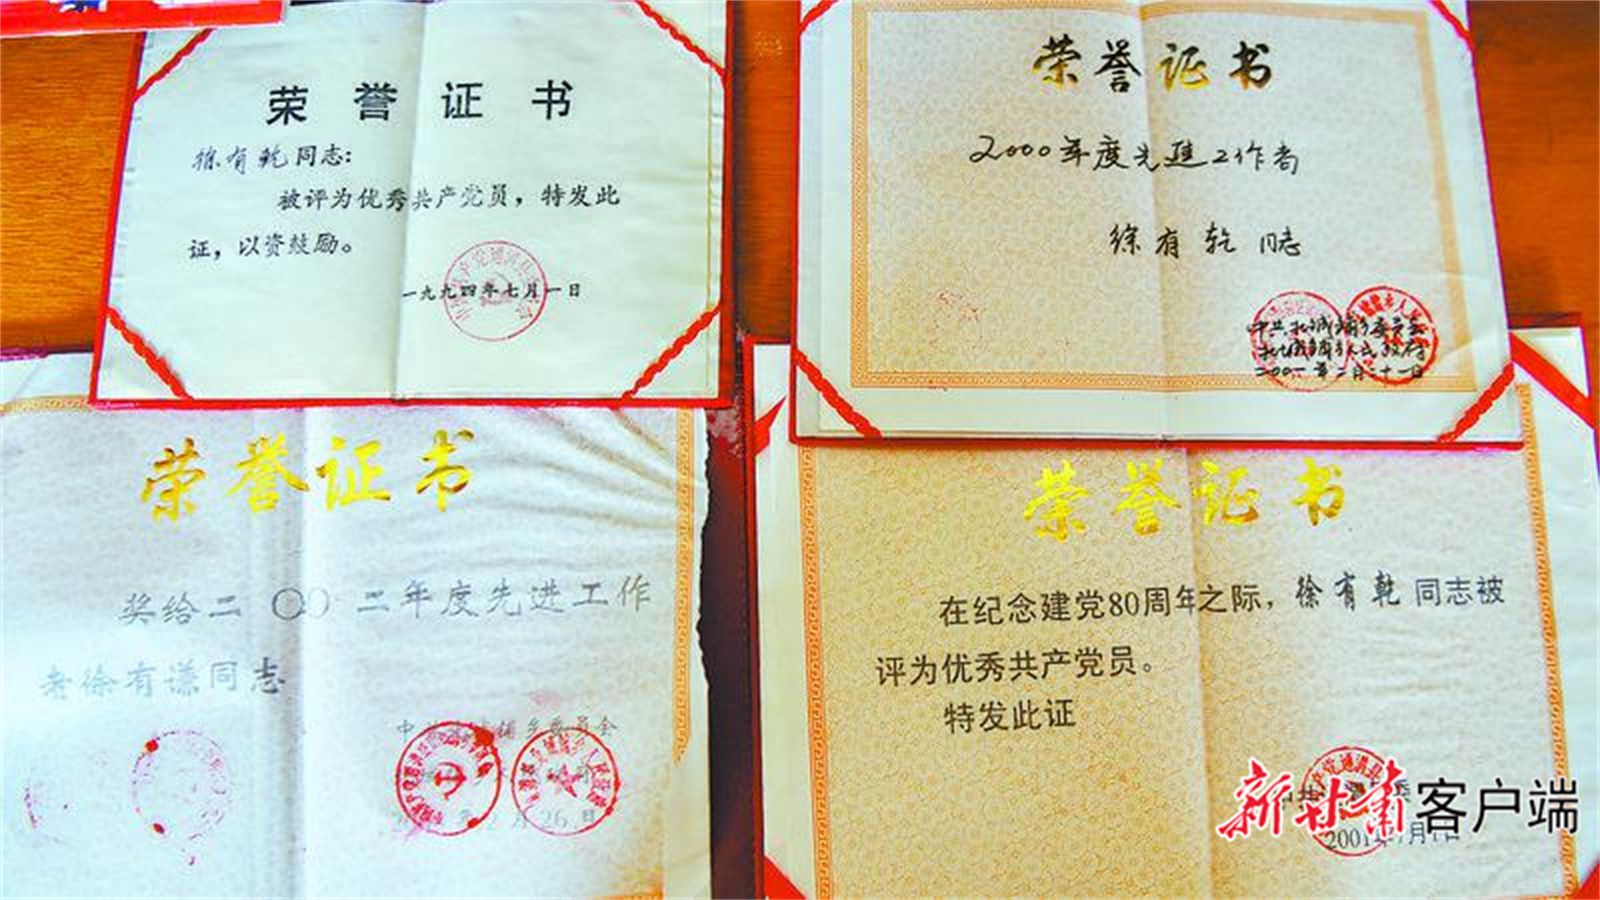 荣誉证书
徐有乾同志：
被评为优秀共产党员，特发此
证，以资鼓励。
一九九四年七月一日
荣誉证书
2000年度先进工作者
徐有乾 同志
中共北城铺乡委员会
北城铺乡人民政府
二〇〇一年二月二十一日
荣誉证书
奖给二〇〇二年度先进工作
者徐有谦同志
荣誉证书
在纪念建党80周年之际，徐有乾同志被
评为优秀共产党员。
特发此证
新甘肃客户端